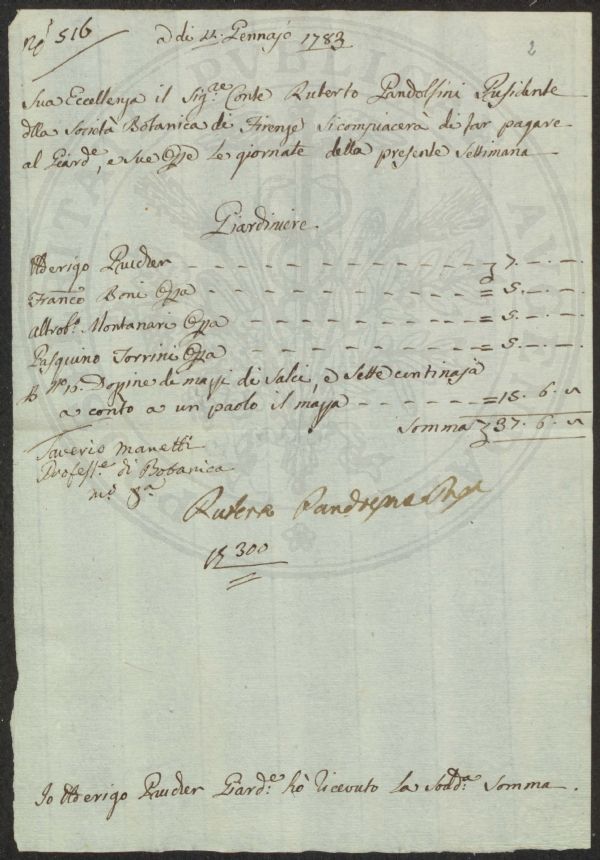 N.º 516
a dì 11. Gennajo 1783
2
Sua Eccellenza il Sig.re Conte Ruberto Pandolfini Presidente
della Società Botanica di Firenze si compiacerà di far pagare
al Giard.e, e sue Opre le giornate della presente Settimana
Giardiniere
Federigo Prucker 7.
Franc.o Boni Opra = 5.
Montanari Opra = 5.
Pasquino Torrini Opra = 5.
Dozzine di mazzi di Salci, e Sette centinaja
a conto a un paolo il mazzo = 15. 6. 8
Somma 37. 6. 8
Saverio Manetti
Profess.e di Botanica
m.o p.a
Ruberto
300
Io Federigo Prucker Giard.e hò ricevuto la Sodd.a Somma.